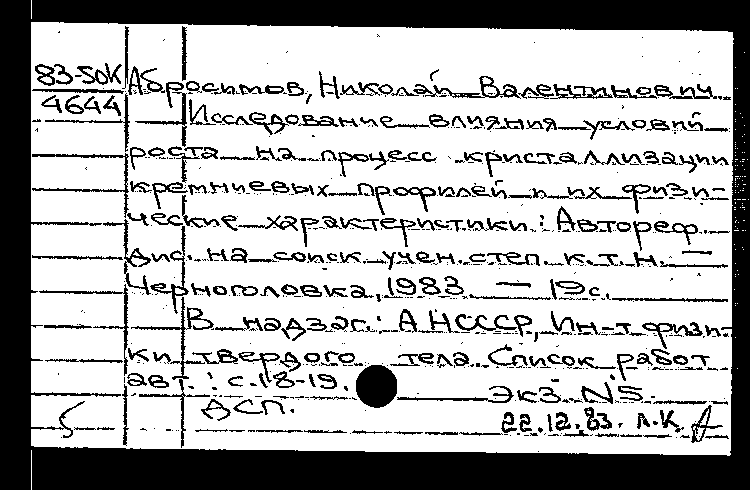 83-50К Абросимов, Николай Валентинович
4644 Исследование влияния условий
роста на процесс кристаллизации
кремниевых профилей и их физи-
ческие характеристики: Автореф.
дис. на соиск учен. степ. к.т.н. —
Черноголовка, 1983. — 19с.
В надзаг.: АН СССР, Ин-т физи-
ки твердого тела. Список работ
авт.: с.18-19.
Экз. N5.
5 ДСП.
22.12.83. Л.К.